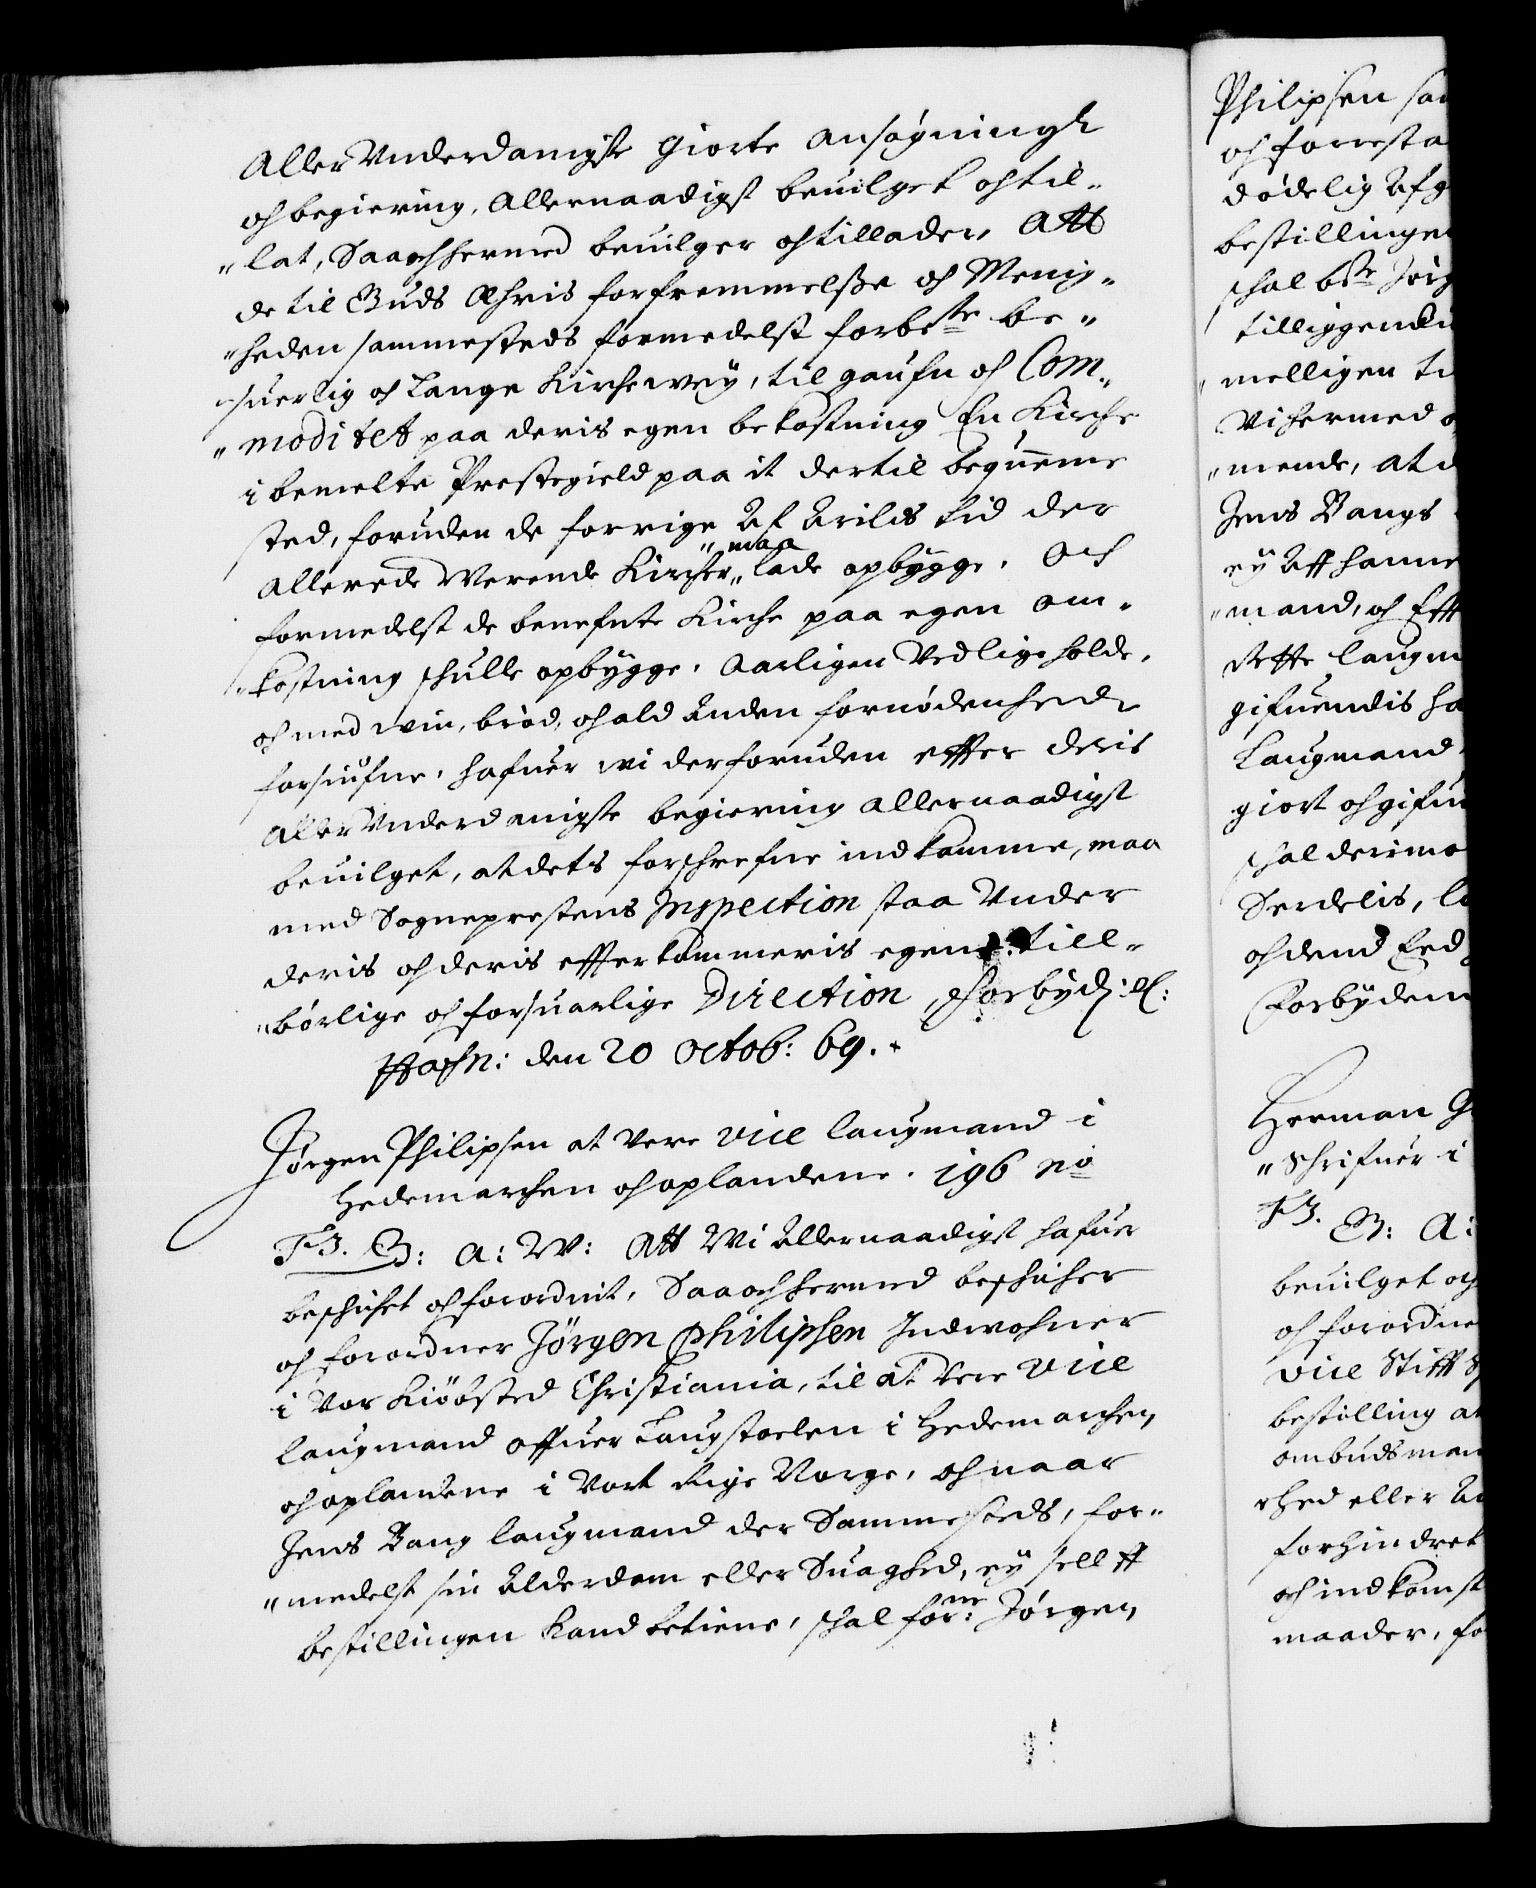 Allervnderdanigste giorte ansøgningh
och begiering, Allernaadigst beuilget och til-
"lat, Saa och hermed beuilger och tillader, Att
de til Guds Æhris forfremmelsse och Menig-
"heden sammesteds formedelst forbete be-
"suerlig och Lange Kircke wey, til gaufn och Com-
"moditet paa deris egen bekostning En Kirche
i bemelte Prestegield paa it dertil beqveme
sted, foruden de forrige Af Arilds tid der
allerede Werende Kircher, "maa lade opbygge. Och
formedelst de benefnte Kirche paa egen om-
"kostning schulle opbygge, aarligen Vedlige holde,
och med win, brød, och ald Anden fornødenhed
forsiufne, hafuer wi derforuden effter deris
allervnderdanigste begiering allernaadigst
beuilget, at dets forschrefne indkomme, maa
med Sogneprestens Inspection staa Vnder
deris och deris effterkommeris egen till-
"børlige och forsuarlige Direction, Forbyd: etc:
Hafn: den 20 octob: 69.
Jørgen Philipsen at vere vice laugmand i
Hedemarchen och oplandene. 196 No
F3. G: A: W: Att Wi Allernaadigst hafuer
beschicket och forordnit, Saa och hermed beschicher
och forordner Jørgen Philipsen Indwohner
i Vor Kiøbsted Christiania, til at vere vice
laugmand offuer Laugstoelen i Hedemarchen
och oplandene i Vort Rige Norge, och naar
Jens Bang laugmand der Sammesteds, for-
"medelst sin Alderdom eller Suaghed, ey sellff
bestillingen kand betiene, schal forne: Jørgen
Philipsen sa
och forresta
dødelig Afg
bestillinge
schal bte Jørg
tilliggende
melligen ti
Vi hermed
"mende, at
Jens Bangs
ey Aff hanne
"mand, och Eff
Rette laugm
gifuendis ha
Laugmand
giort och gifu
schal derimo
Serdelis, l
och dend Eed
Forbydem
Herman G
"Schrifuer i
F3. G: A:
beuilget och
och forordne
vice Stiffts
bestilling a
ombudsman
"hed eller A
forhindret
och indkomst
maader, fo